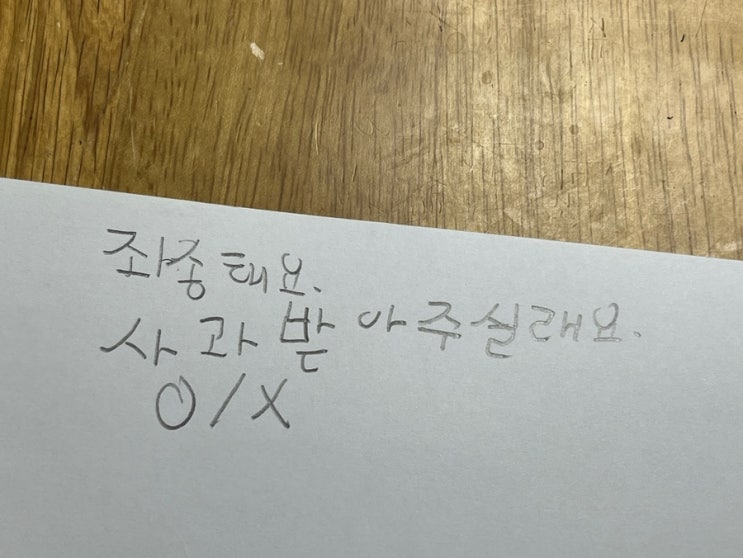 좌종해요.
사과 받 아주실래요.
O/X